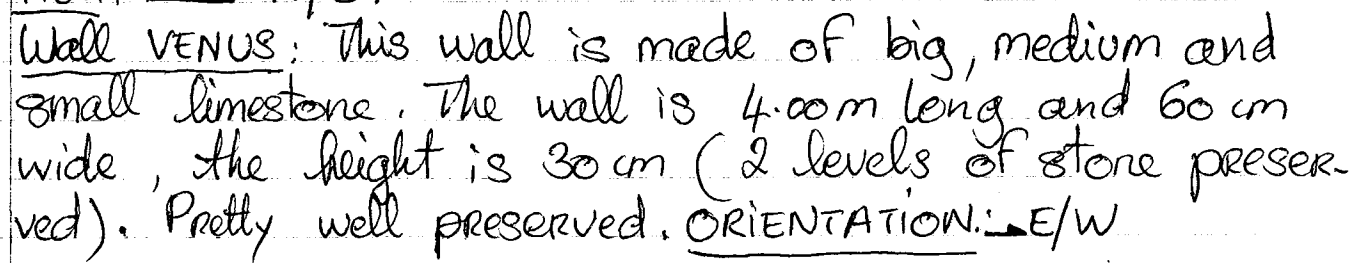 Wall VENUS: This wall is made of big, medium and
small limestone. The wall is 4.00m long and 60 cm
wide, the height is 30 cm (2 levels of stone preser-
ved). Pretty well preserved. ORIENTATION: E/W